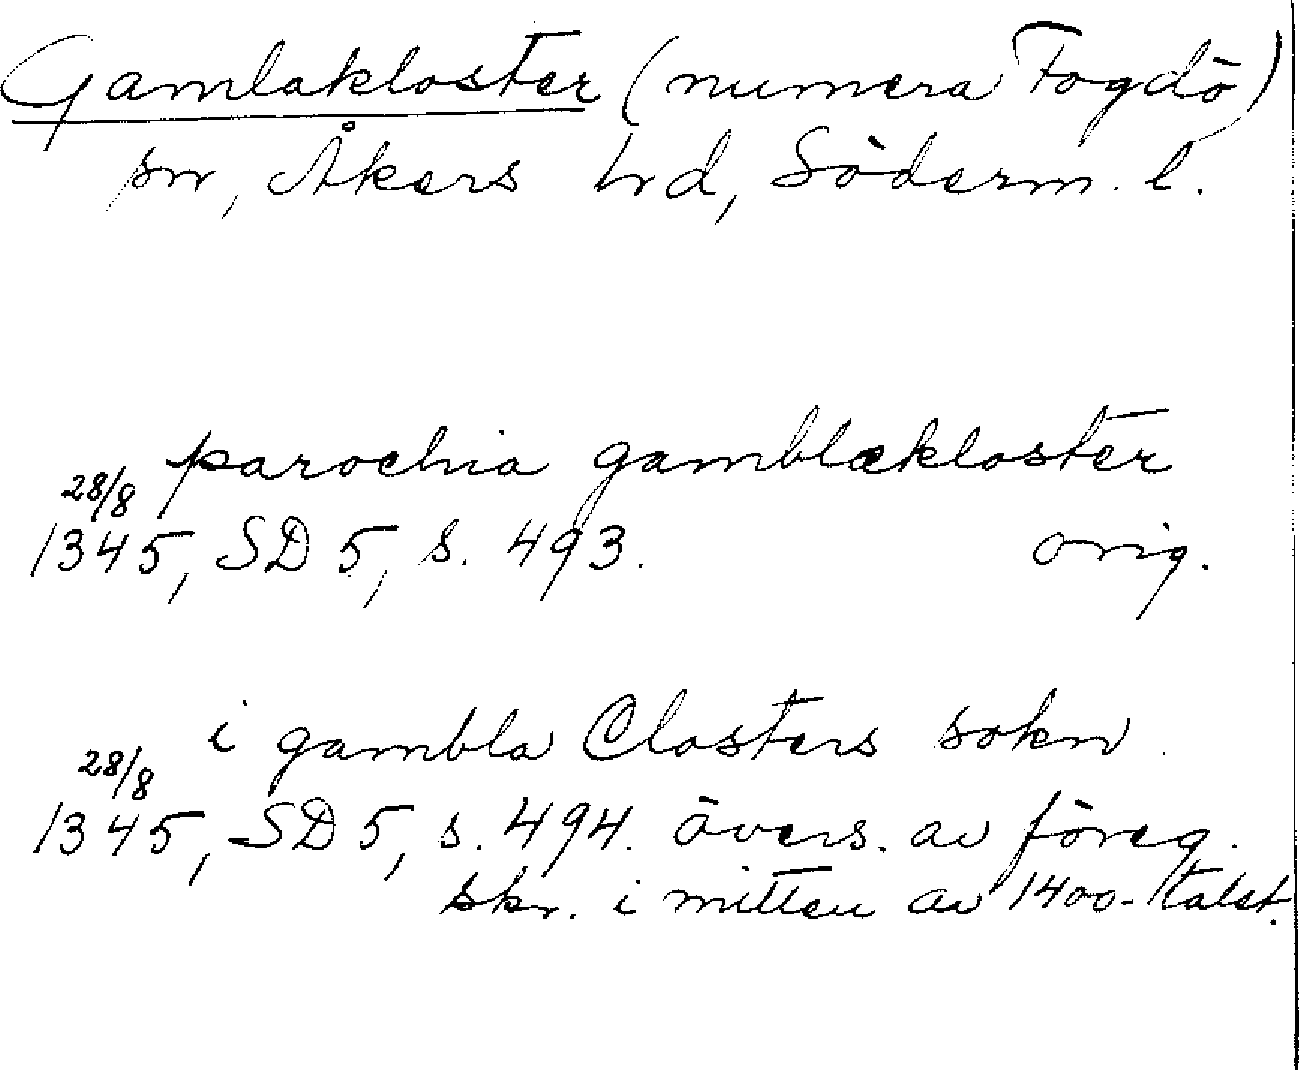 Gamlakloster (numera Fogdö)
sn, Åkers hd, Söderm. l.
parochia gamblækloster
28/8
1345, SD 5, s. 493. orig.
i gambla Closters sokn
28/8
1345, SD 5, s. 494. övers. av föreg.
skr. i mitten av 1400-talet.